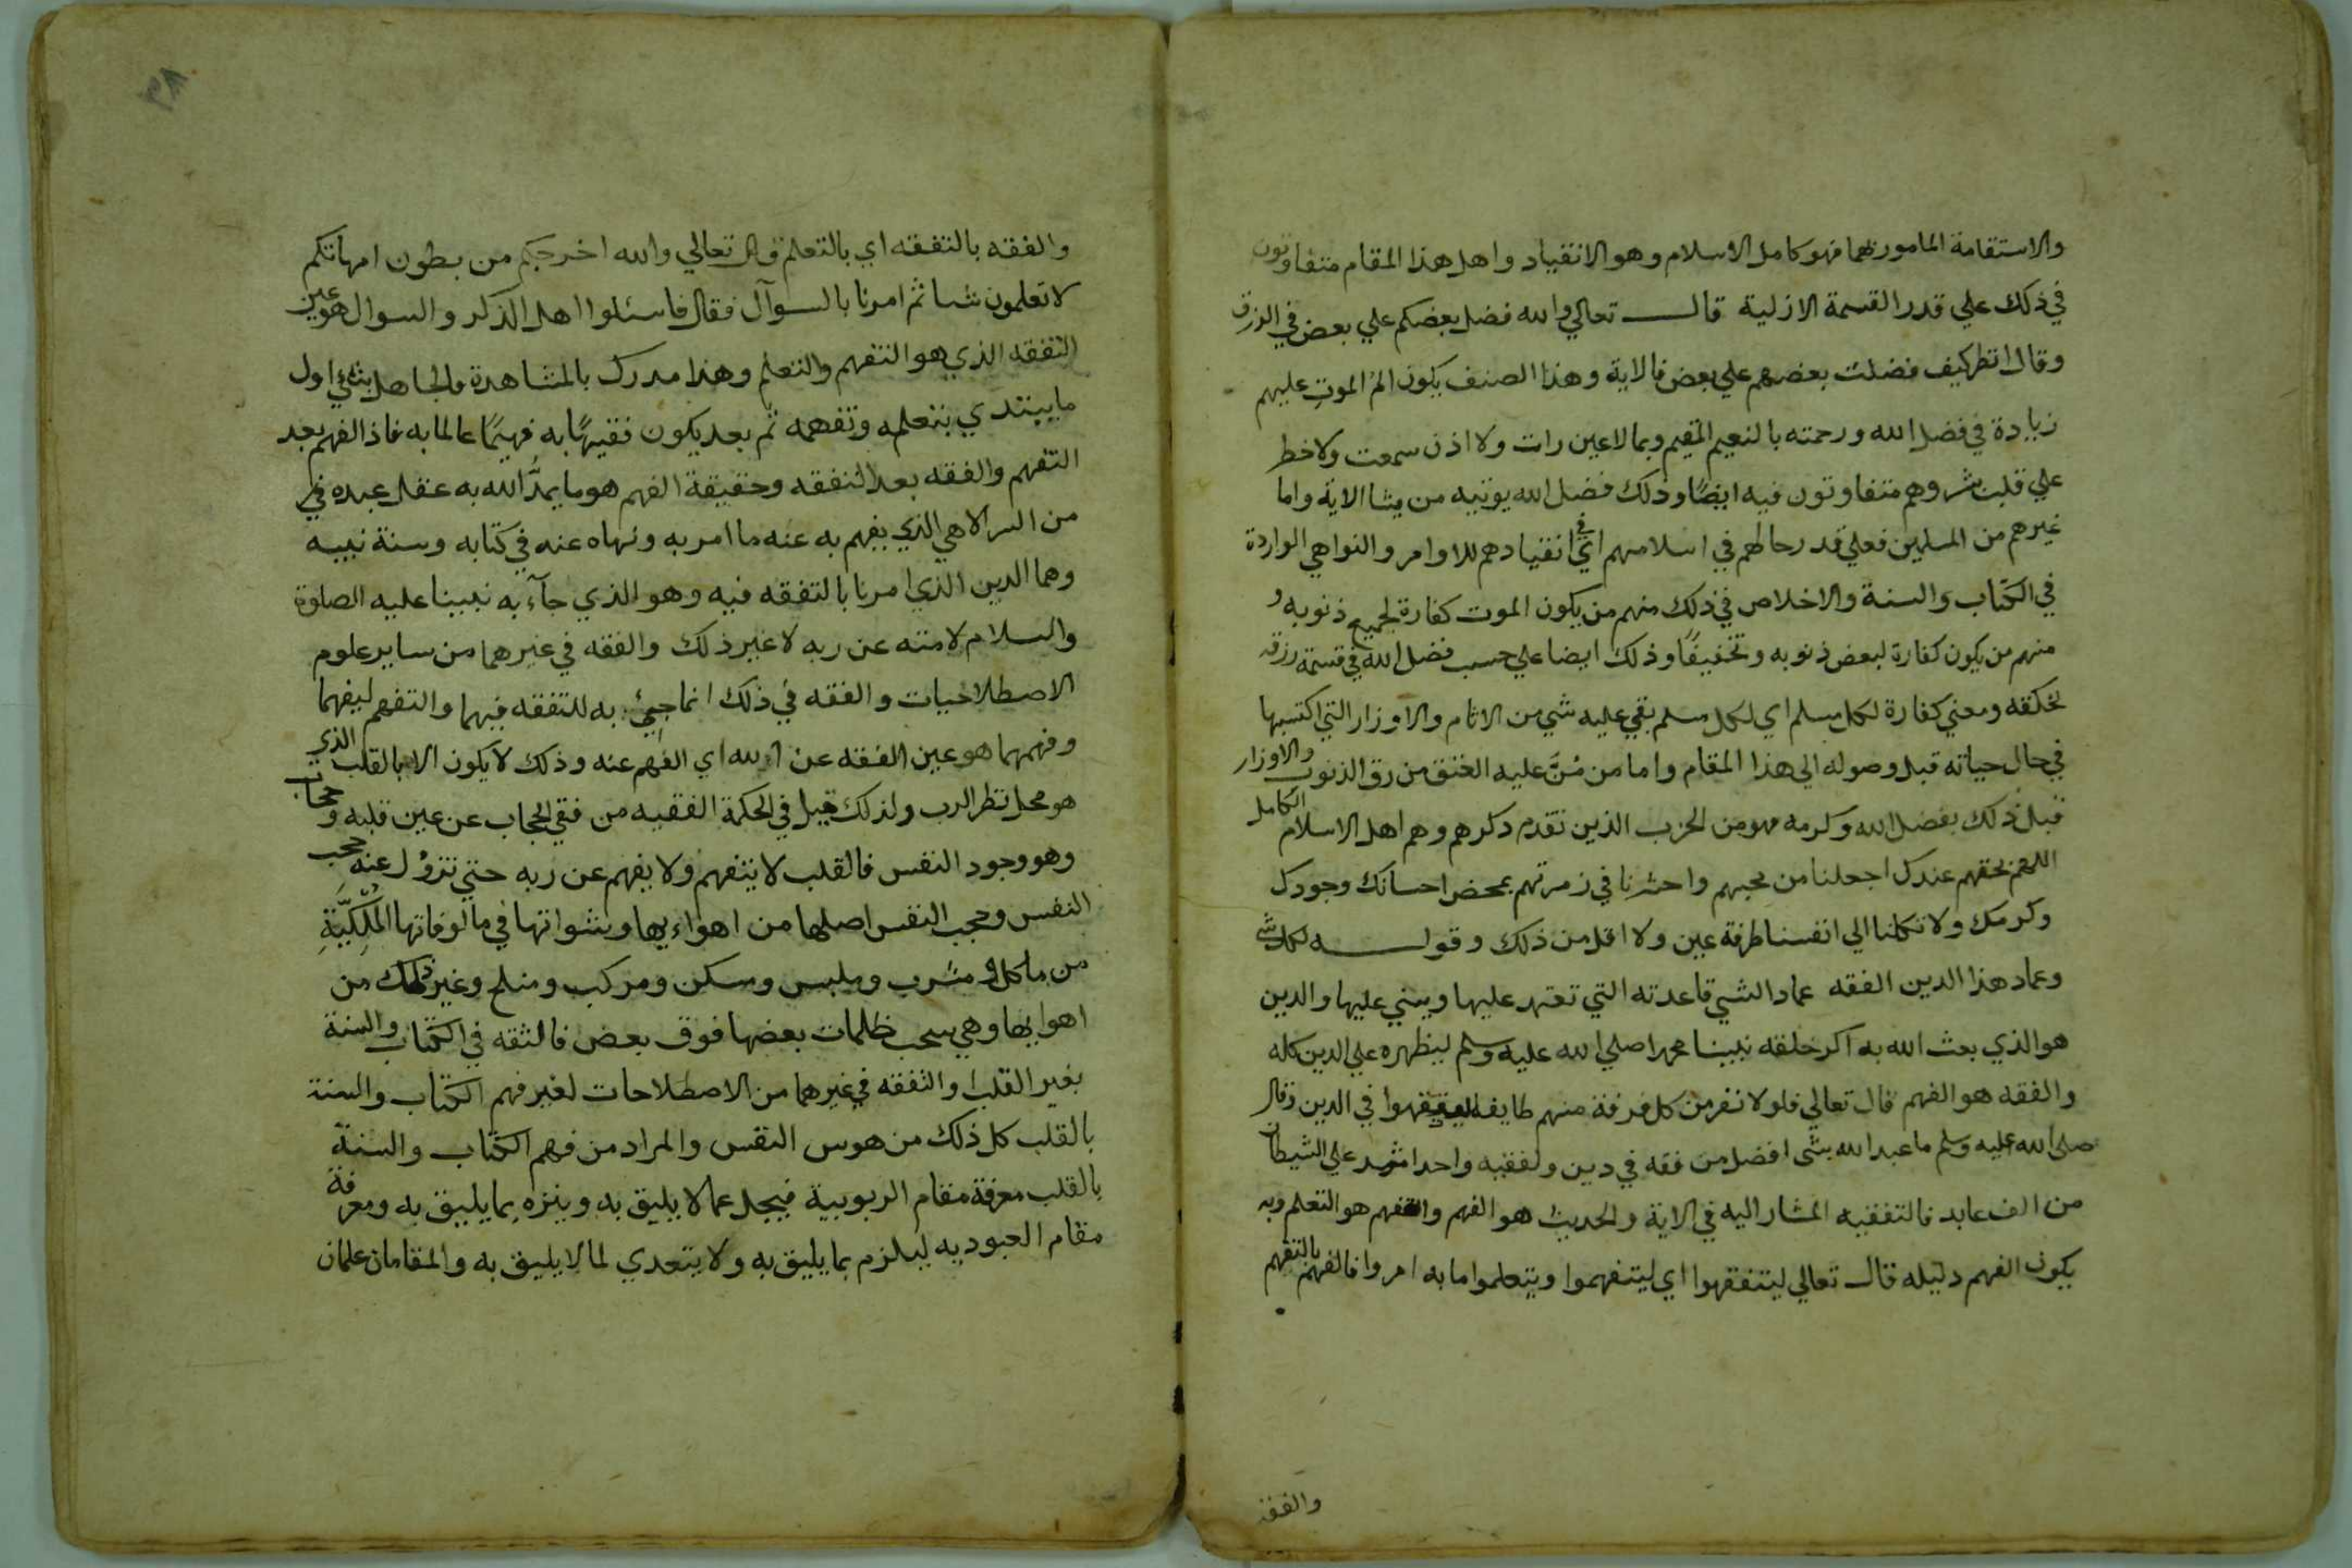 والاستقامة المامور بهما فهو كامل الاسلام وهو الانقياد واهل هذا المقام متفاوتون
في ذلك علي قدر القسمة الازلية قال تعالي والله فضل بعضكم علي بعض في الرزق
وقال انظر كيف فضلنا بعضهم علي بعض فالاية وهذا الصنف يكون الم الموت عليهم
زيادة في فضل الله ورحمته بالنعيم المقيم وبما لا عين رات ولا اذن سمعت ولا خطر
علي قلب بشر وهم متفاوتون فيه ايضًا وذلك فضل الله يوتيه من يشا الاية واما
غيرهم من المسلمين فعلي قدر حالهم في اسلامهم اي في انقيادهم للاوامر والنواهي الواردة
في الكتاب والسنة والاخلاص في ذلك منهم من يكون الموت كفارة لجميع ذنوبه و
منهم من يكون كفارة لبعض ذنوبه وتخفيفًا وذلك ايضا علي حسب فضل الله في قسمة رزقه
لخلقه ومعني كفارة لكل مسلم اي لكل مسلم بقي عليه شي من الاثام والاوزار التي اكتسبها
في حال حياته قبل وصوله الي هذا المقام واما من مُنَّ عليه العتق من رق الذنوب والاوزار
قبل ذلك بفضل الله وكرمه فهو من الحزب الذين تقدم ذكرهم وهم اهل الاسلام الكامل
اللهم بحقهم عندك اجعلنا من محبهم واحشرنا في زمرتهم بمحض احسانك وجودك
وكرمك ولا تكلنا الي انفسنا طرفة عين ولا اقل من ذلك وقوله لكل شي
وعماد هذا الدين الفقه عماد الشي قاعدته التي تعتمد عليها ويبني عليها والدين
هو الذي بعث الله به اكرم خلقه نبينا محمدا صلي الله عليه وسلم ليظهره علي الدين كله
والفقه هو الفهم قال تعالي فلولا نفر من كل فرقة منهم طايفة ليتفقهوا في الدين وقال
صلي الله عليه وسلم ما عبد الله بشي افضل من فقه في دين ولفقيه واحد اشد علي الشيطان
من الف عابد فالتفقيه المشار اليه في الاية والحديث هو الفهم والتفهم هو التعلم وبه
يكون الفهم دليله قال تعالي ليتفقهوا اي ليتفهموا ويتعلموا ما به امروا فالفهم بالتفهم
والفقه
٣٨
والفقه بالتفقه اي بالتعلم قال تعالي والله اخرجكم من بطون امهاتكم
لا تعلمون شيا ثم امرنا بالسوآل فقال فاسئلوا اهل الذكر والسوال هو عين
التفقه الذي هو التفهم والتعلم وهذا مدرك بالمشاهدة فالجاهل بشئ اول
ما يبتدي بتعلمه وتفهمه ثم بعد يكون فقيهًا به فهيمًا عالما به فاذا الفهم بعد
التفهم والفقه بعد التفقه وحقيقة الفهم هو ما يمدُّ الله به عقل عبده في
من السر الاهي الذي يفهم به عنه ما امر به ونهاه عنه في كتابه وسنة نبيه
وهما الدين الذي امرنا بالتفقه فيه وهو الذي جآء به نبينا عليه الصلوة
والسلام لامته عن ربه لا غير ذلك والفقه في غيرهما من ساير علوم
الاصطلاحيات والفقه في ذلك انما جيئ به للتفقه فيهما والتفهم ليفهما
وفهمهما هو عين الفقه عن الله اي الفهم عنه وذلك لا يكون الا بالقلب الذي
هو محل نظر الرب ولذلك قيل في الحكمة الفقيه من فقئ الحجاب عن عين قلبه و حجاب
وهو وجود النفس فالقلب لا يتفهم ولا يفهم عن ربه حتي تزول عنه حجب
النفس وحجب النفس اصلها من اهواءيها وشهواتها في مالوفاتها المُلْكيَّة
من ماكل و مشرب وملبس ومسكن ومركب ومنكح وغير ذلك من
اهوايها وهي سحب ظلمات بعضها فوق بعض فالتفقه في الكتاب والسنة
بغير القلب والتفقه في غيرهما من الاصطلاحات لغير فهم الكتاب والسنة
بالقلب كل ذلك من هوس النفس والمراد من فهم الكتاب والسنة
بالقلب معرفة مقام الربوبية فيجل عما لا يليق به وينزه بما يليق به ومعرفة
مقام العبوديه ليلزم بما يليق به ولا يتعدي لما لا يليق به والمقامان علمان